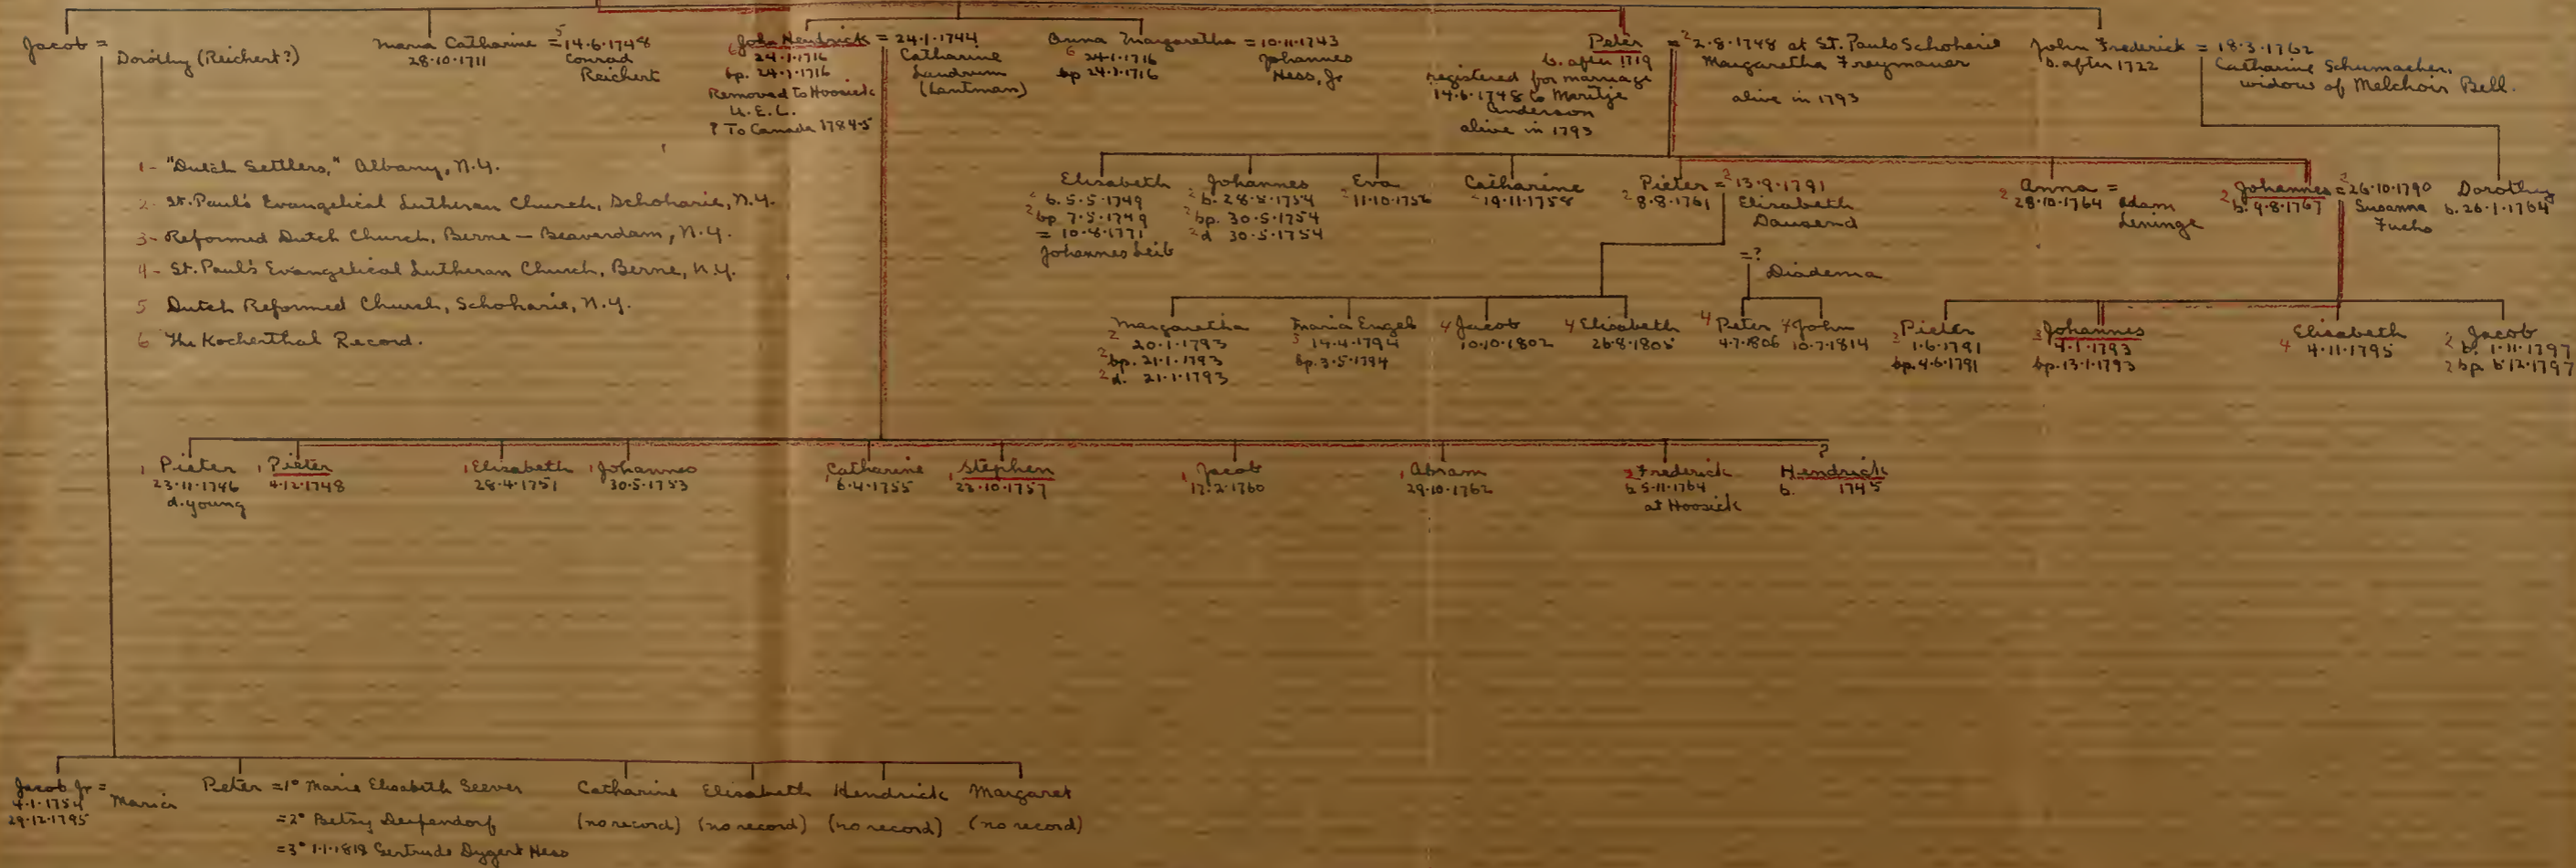 Jacob =
Dorothy (Reichert?)
Maria Catharine = 5 14.6.1748
28.10.1711
Conrad
Reichert
John Hendrick = 24.1.1744
6 24.1.1716
bp. 24.1.1716
Removed to Hoosick
U.E.L.
? To Canada 1784-5
Catharine
Landrum
(Lantman)
Anna Margaretha = 10.11.1743
6 24.1.1716
bp 24.1.1716
Johannes
Hess, Jr
Peter = 2 2.8.1748 at St. Pauls Schoharie
b. after 1719
registered for marriage
14.6.1748 to Maritje
Anderson
alive in 1793
Margaretha Freymauer
alive in 1793
John Frederick = 18.3.1762
b. after 1722
Catharine Schumacher,
widow of Melchoir Bell.
1 - "Dutch Settlers," Albany, N.Y.
2 - St. Paul's Evangelical Lutheran Church, Schoharie, N.Y.
3 - Reformed Dutch Church, Berne - Beaverdam, N.Y.
4 - St. Paul's Evangelical Lutheran Church, Berne, N.Y.
5 Dutch Reformed Church, Schoharie, N.Y.
6 The Kocherthal Record.
Elisabeth
2 b. 5.5.1749
2 bp 7.5.1749
= 10.8.1771
Johannes Leib
Johannes
2 b. 28.5.1754
2 bp. 30.5.1754
2 d 30.5.1754
Eva
2 11.10.1756
Catharine
2 19.11.1758
Pieter = 2 13.9.1791
2 8.8.1761
Elisabeth
Dausend
=?
Diadema
Anna =
2 28.10.1764
Adam
Leninge
Johannes = 2 26.10.1790
2 b. 9.8.1767
Susanna
Fuchs
Dorothy
b. 26.1.1764
Margaretha
2 20.1.1793
2 bp. 21.1.1793
2 d. 21.1.1793
Maria Engel
3 14.4.1794
bp. 3.5.1794
4 Jacob
10.10.1802
4 Elisabeth
26.8.1805
4 Peter
4.7.1806
4 John
10.7.1814
Pieter
2 1.6.1791
bp. 4.6.1791
3 Johannes
4.1.1793
bp. 13.1.1793
Elisabeth
4 4.11.1795
Jacob
2 b. 1.11.1797
2 bp. 6.12.1797
1 Pieter
23.11.1746
d. young
1 Pieter
4.12.1748
1 Elisabeth
28.4.1751
1 Johannes
30.5.1753
Catharine
1 6.4.1755
1 Stephen
23.10.1757
1 Jacob
17.2.1760
1 Abram
29.10.1762
2 Frederick
b 5.11.1764
at Hoosick
?
Hendrick
b. 1745
Jacob Jr =
4.1.1754
29.12.1795
Maria
Peter = 1° Maria Elisabeth Seever
= 2° Betsy Deifendorf
= 3° 1.1.1818 Gertrude Dygert Hess
Catharine
(no record)
Elisabeth
(no record)
Hendrick
(no record)
Margaret
(no record)